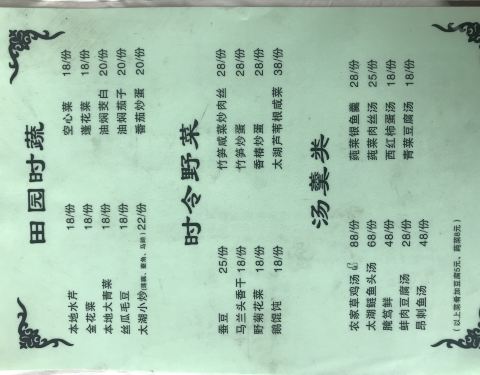 田园时蔬
本地水芹 18/份
空心菜 18/份
金花菜 18/份
蓬花菜 18/份
本地大青菜 18/份
油焖茭白 20/份
丝瓜毛豆 18/份
油焖茄子 20/份
太湖小炒 22/份
番茄炒蛋 20/份
时令野菜
蚕豆 25/份
竹笋咸菜炒肉丝 28/份
马兰头香干 18/份
竹笋炒蛋 28/份
野菊花菜 18/份
香椿炒蛋 28/份
鹅馄饨 18/份
太湖芦苇根咸菜 38/份
汤羹类
农家草鸡汤 88/份
莼菜银鱼羹 28/份
太湖鲢鱼头汤 68/份
莼菜肉丝汤 25/份
腌笃鲜 48/份
西红柿蛋汤 18/份
蚌肉豆腐汤 28/份
青菜豆腐汤 18/份
昂刺鱼汤 48/份
(以上菜肴加豆腐5元、两菜8元)